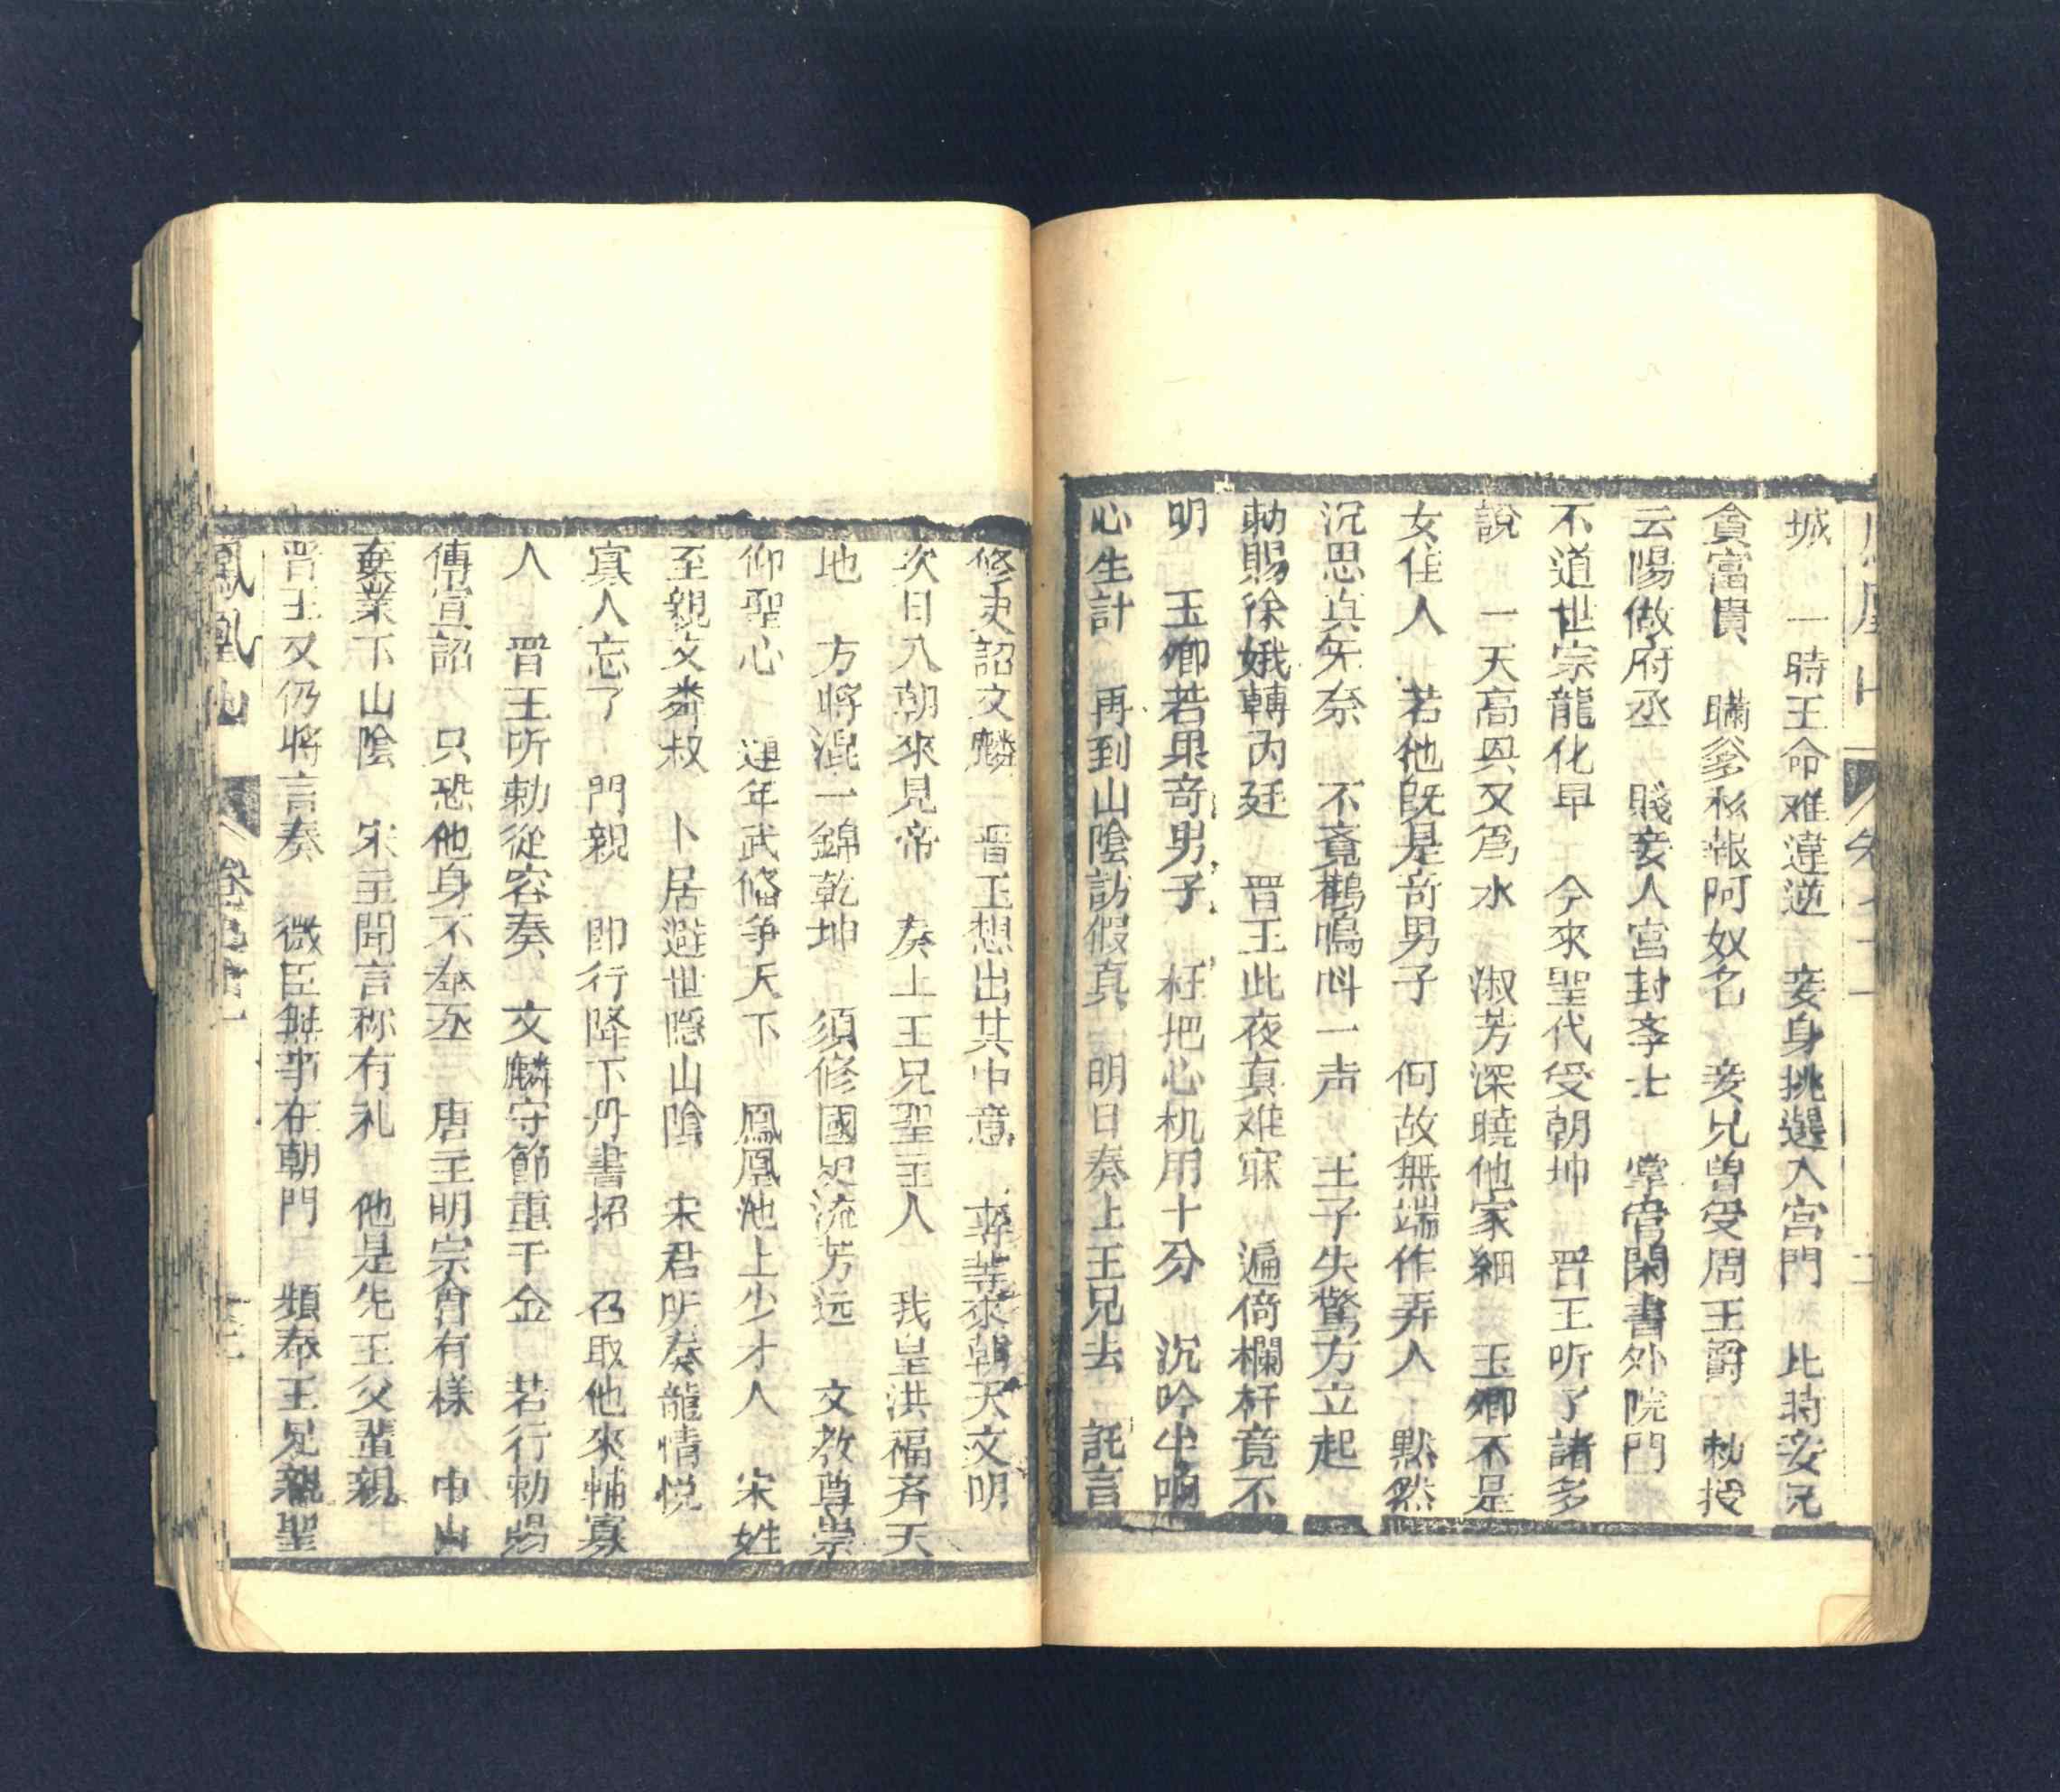 城　一時王命难違逆　妾身挑選入宮門　比時妾兄
貪富貴　瞞爹私報阿奴名　妾兄曽受周王爵　勅授
云陽做府丞　賤妾人宮封李士　堂官閑書外院門
不道世宗龍化早　今來聖代受朝坤　晋王听了諸多
說　一天高具又為水　淑芳深曉他家細　玉卿不是
女佳人　若他既是奇男子　何故無端作弄人　默然
沉思真无奈　不竟鶴鳴呌一声　王子失驚方立起
勅賜徐娥轉內廷　晋王此夜真难寐　遍倚欄杆竟不
明　玉卿若果奇男子　枉把心机用十分　沉吟坐响
心生計　再到山陰訪假真　明日奏上王兄去　託言
修史詔文麟　晋王想出其中意　來朝天文明
次日入朝來見帝　奏上王兄聖主人　我皇洪福斉天
地　方將混一錦乾坤　須修國史流芳远　文教尊崇
仰聖心　連年武俻爭天下　鳳凰池上少才人　宋姓
至親文粦叔　卜居避世隱山陰　宋君听奏龍情悅
寡人忘了一門親　即行降下丹書招　召取他來輔寡
人　晋王听勅從容奏　文麟守節重千金　若行勅賜
傳宣詔　只恐他身不奉丞　唐主明宗會有樣　中山
棄業下山陰　宋主聞言称有礼　他是先王父輩親
晋王又仍將言奏　微臣無事在朝門　頻奉王兄親聖
鳳凰山　卷七十一